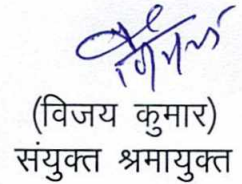 (विजय कुमार)
संयुक्त श्रमायुक्त